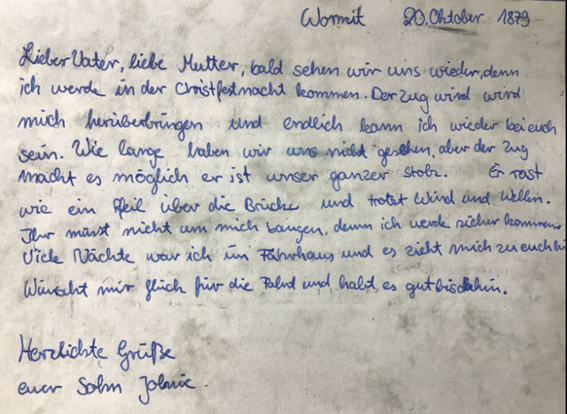 Wormit 20. Oktober 1879
Lieber Vater, liebe Mutter, bald sehen wir uns wieder, denn
ich werde in der Christfestnacht kommen. Der Zug wird wird
mich herüberbringen und endlich kann ich wieder bei euch
sein. Wie lange haben wir uns nicht gesehen, aber der Zug
macht es möglich er ist unser ganzer Stolz. Er rast
wie ein Pfeil über die Brücke und trotzt Wind und Wellen.
Ihr müsst nicht um mich bangen, denn ich werde sicher kommen.
Viele Nächte war ich im Fährhaus und es zieht mich zu euch hin
Wünscht mir Glück für die Fahrt und habt es gut bis dahin.
Herzlichste Grüße
euer Sohn Johnie.